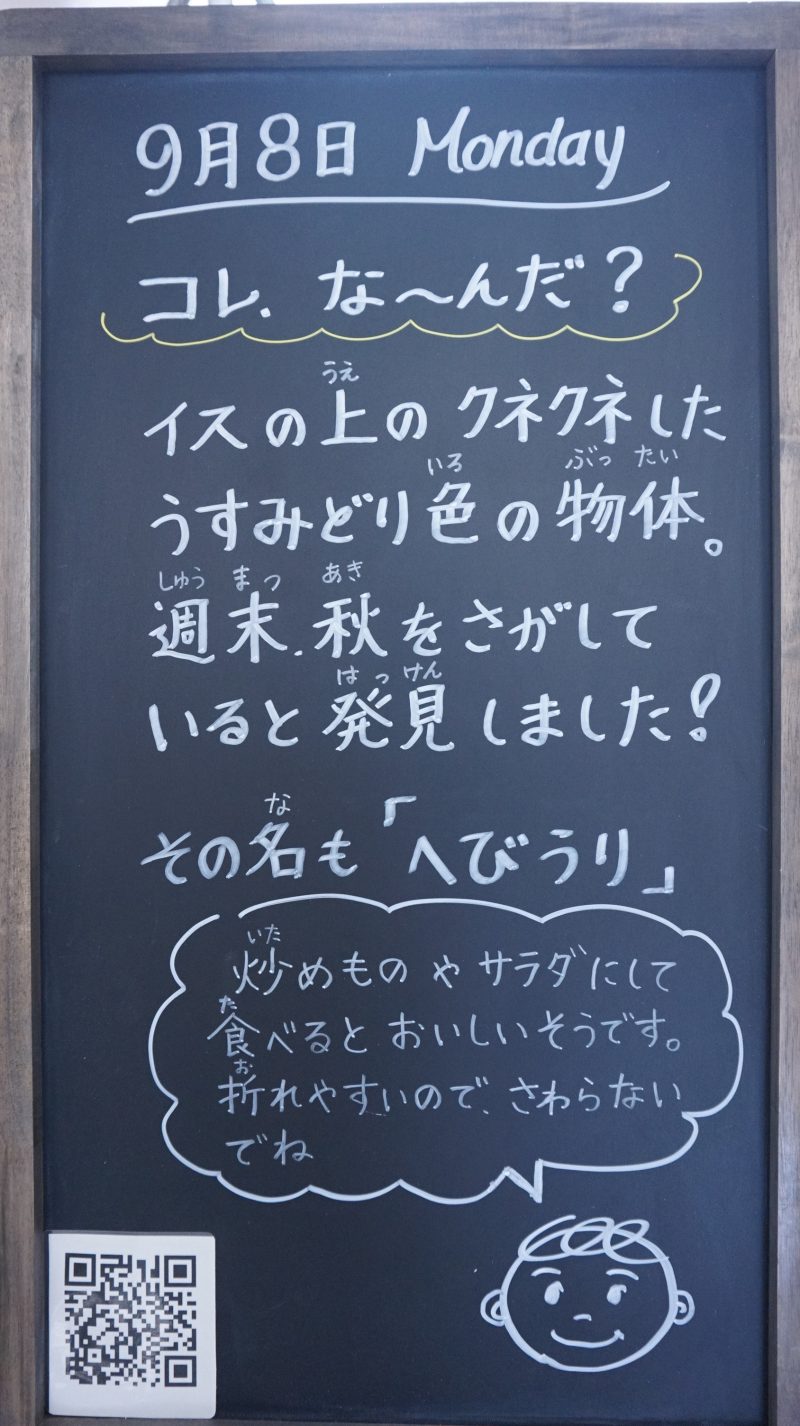 9月8日 Monday
コレ、な〜んだ？
うえ
イスの上のクネクネした
いろ ぶっ たい
うすみどり色の物体。
しゅう まつ あき
週末、秋をさがして
はっ けん
いると発見しました！
な
その名も「へびうり」
いた
炒めものやサラダにして
た
食べるとおいしいそうです。
お
折れやすいので、さわらない
でね